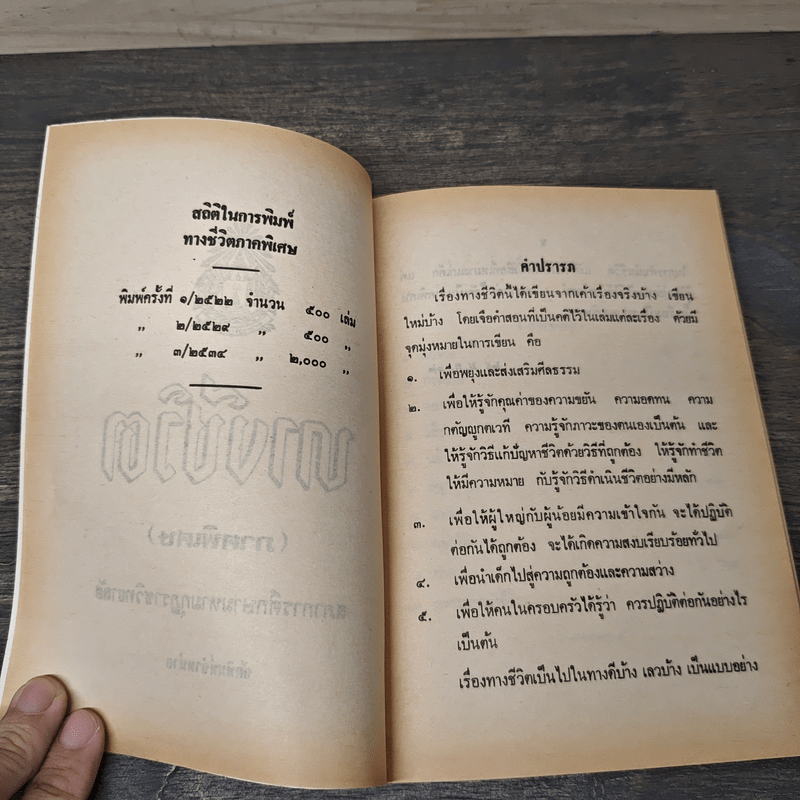 สถิติในการพิมพ์
ทางชีวิตภาคพิเศษ
พิมพ์ครั้งที่ ๑/๒๕๒๒ จำนวน ๕๐๐ เล่ม
„ ๒/๒๕๒๙ „ ๕๐๐ „
„ ๓/๒๕๓๔ „ ๒,๐๐๐ „
คำปรารภ
เรื่องทางชีวิตนี้ได้เขียนจากเค้าเรื่องจริงบ้าง เขียน
ใหม่บ้าง โดยเจือคำสอนที่เป็นคติไว้ในเล่มแต่ละเรื่อง ด้วยมี
จุดมุ่งหมายในการเขียน คือ
๑. เพื่อพยุงและส่งเสริมศีลธรรม
๒. เพื่อให้รู้จักคุณค่าของความขยัน ความอดทน ความ
กตัญญูกตเวที ความรู้จักภาวะของตนเองเป็นต้น และ
ให้รู้จักวิธีแก้ปัญหาชีวิตด้วยวิธีที่ถูกต้อง ให้รู้จักทำชีวิต
ให้มีความหมาย กับรู้จักวิธีดำเนินชีวิตอย่างมีหลัก
๓. เพื่อให้ผู้ใหญ่กับผู้น้อยมีความเข้าใจกัน จะได้ปฏิบัติ
ต่อกันได้ถูกต้อง จะได้เกิดความสงบเรียบร้อยทั่วไป
๔. เพื่อนำเด็กไปสู่ความถูกต้องและความสว่าง
๕. เพื่อให้คนในครอบครัวได้รู้ว่า ควรปฏิบัติต่อกันอย่างไร
เป็นต้น
เรื่องทางชีวิตเป็นไปในทางดีบ้าง เลวบ้าง เป็นแบบอย่าง